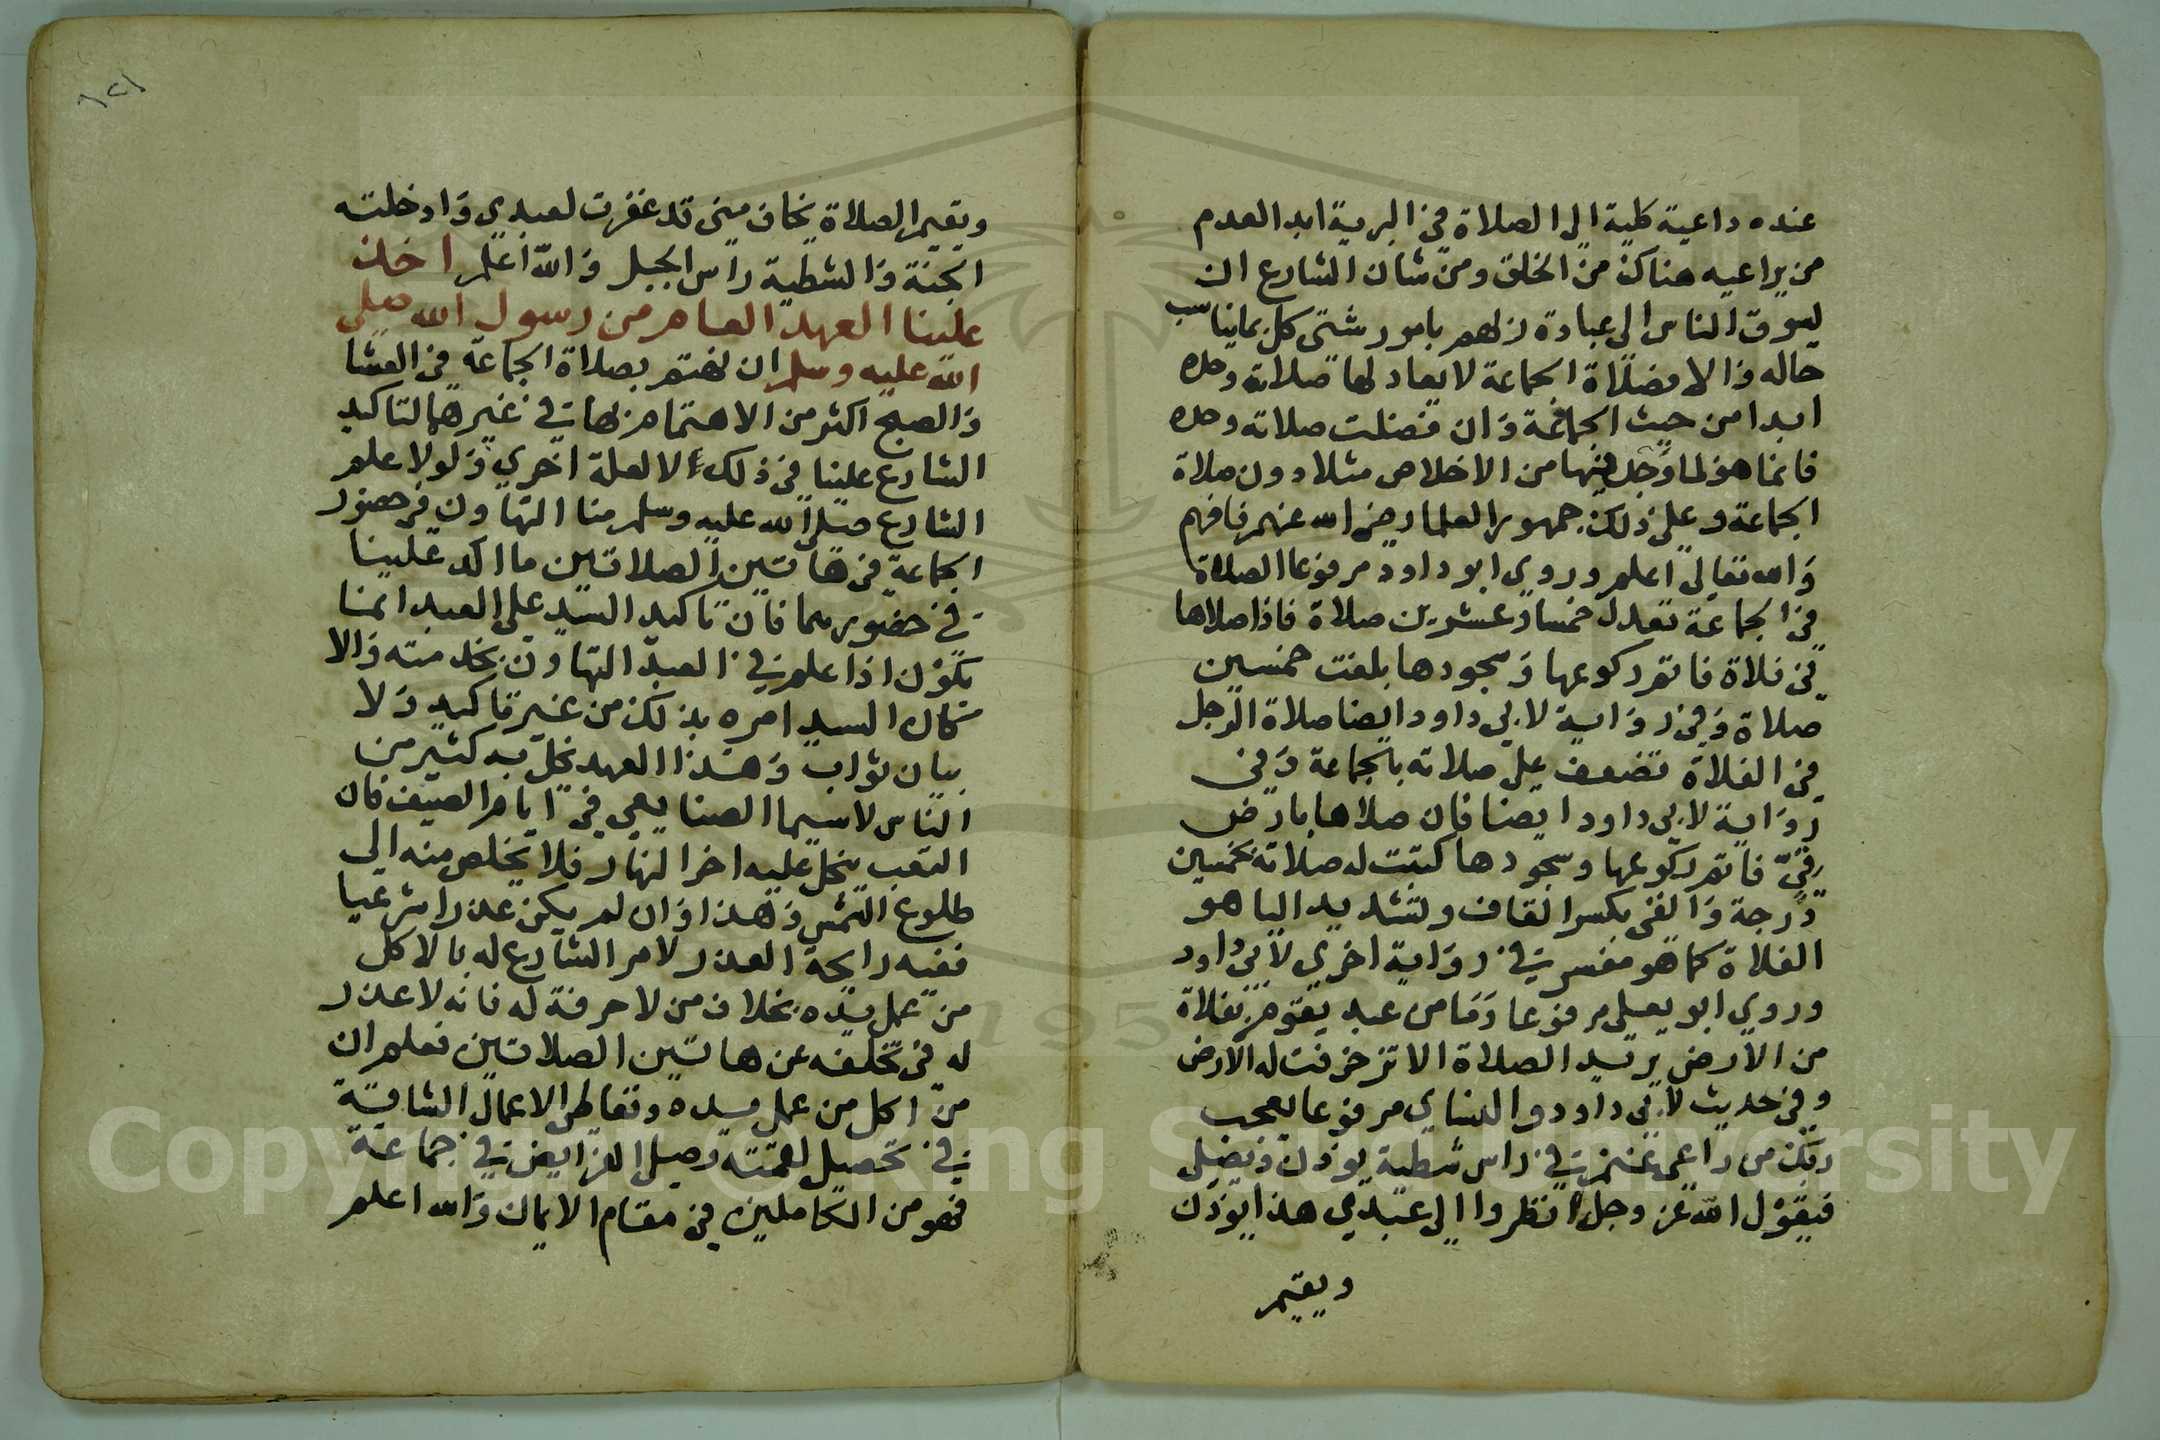 عنده داعية كلية الى الصلاة في البرية ابدا لعدم
من يراعيه هناك من الخلق ومن شان الشارع ان
يسوق الناس الى عبادة ربهم بامور شتى كل بما يناسب
حاله والا فصلاة الجماعة لا يعاد لها صلاته وحده
ابدا من حيث الجماعة وان فضلت صلاته وحده
فانما هو لما وجد فيها من الاخلاص مثلا دون صلاة
الجماعة وعلى ذلك جمهور العلما رضي الله عنهم فافهم
والله تعالى اعلم وروى ابو داود مرفوعا الصلاة
في الجماعة تعدل خمسا وعشرين صلاة فاذا صلاها
في فلاة فاتم ركوعها وسجودها بلغت خمسين
صلاة وفي رواية لابي داود ايضا صلاة الرجل
في الفلاة تضعف على صلاته بالجماعة وفي
رواية لابي داود ايضا فان صلاها بارض
قيّ فاتم ركوعها وسجودها كتبت له صلاته بخمسين
درجة والقي بكسر القاف وتشديد اليا هو
الفلاة كما هو مفسر في رواية اخرى لابي داود
وروى ابو يعلى مرفوعا وما من عبد يقوم بفلاة
من الارض يريد الصلاة الا تزخرفت له الارض
وفي حديث لابي داود والنساي مرفوعا يعجب
ربك من راعي غنم في راس شطية يوذن ويصلي
فيقول الله عز وجل انظروا الى عبدي هذا يوذن
ويقيم
١٢١
ويقيم الصلاة يخاف مني قد غفرت لعبدي وادخلته
الجنة والشطية راس الجبل والله اعلم اخذ
علينا العهد العام من رسول الله صلى
الله عليه وسلم ان نهتم بصلاة الجماعة في العشا
والصبح اكثر من الاهتمام بها في غيرهما لتاكيد
الشارع علينا في ذلك لا لعلة اخرى ولولا علم
الشارع صلى الله عليه وسلم منا التهاون في حضور
الجماعة في هاتين الصلاتين ما اكد علينا
في حضورهما فان تاكيد السيد على العبد انما
يكون اذا علم في العبد التهاون بخدمته والا
كان السيد امره بذلك من غير تاكيد ولا
بيان ثواب وهذا العهد يخل به كثير من
الناس لا سيما الصنايعي في ايام الصيف فان
التعب يحل عليه اخر النهار فلا يخلص منه الى
طلوع الشمس وهذا وان لم يكن عذرا شرعيا
ففيه رايحة العذر لامر الشارع له بالاكل
من عمل يده بخلاف من لا حرفة له فانه لا عذر
له في تخلفه عن هاتين الصلاتين فعلم ان
من اكل من عمل يده وتعاطى الاعمال الشاقة
في تحصيل لقمته وصلى الفرايض في جماعة
فهو من الكاملين في مقام الايمان والله اعلم
Copyright © King Saud University
1957